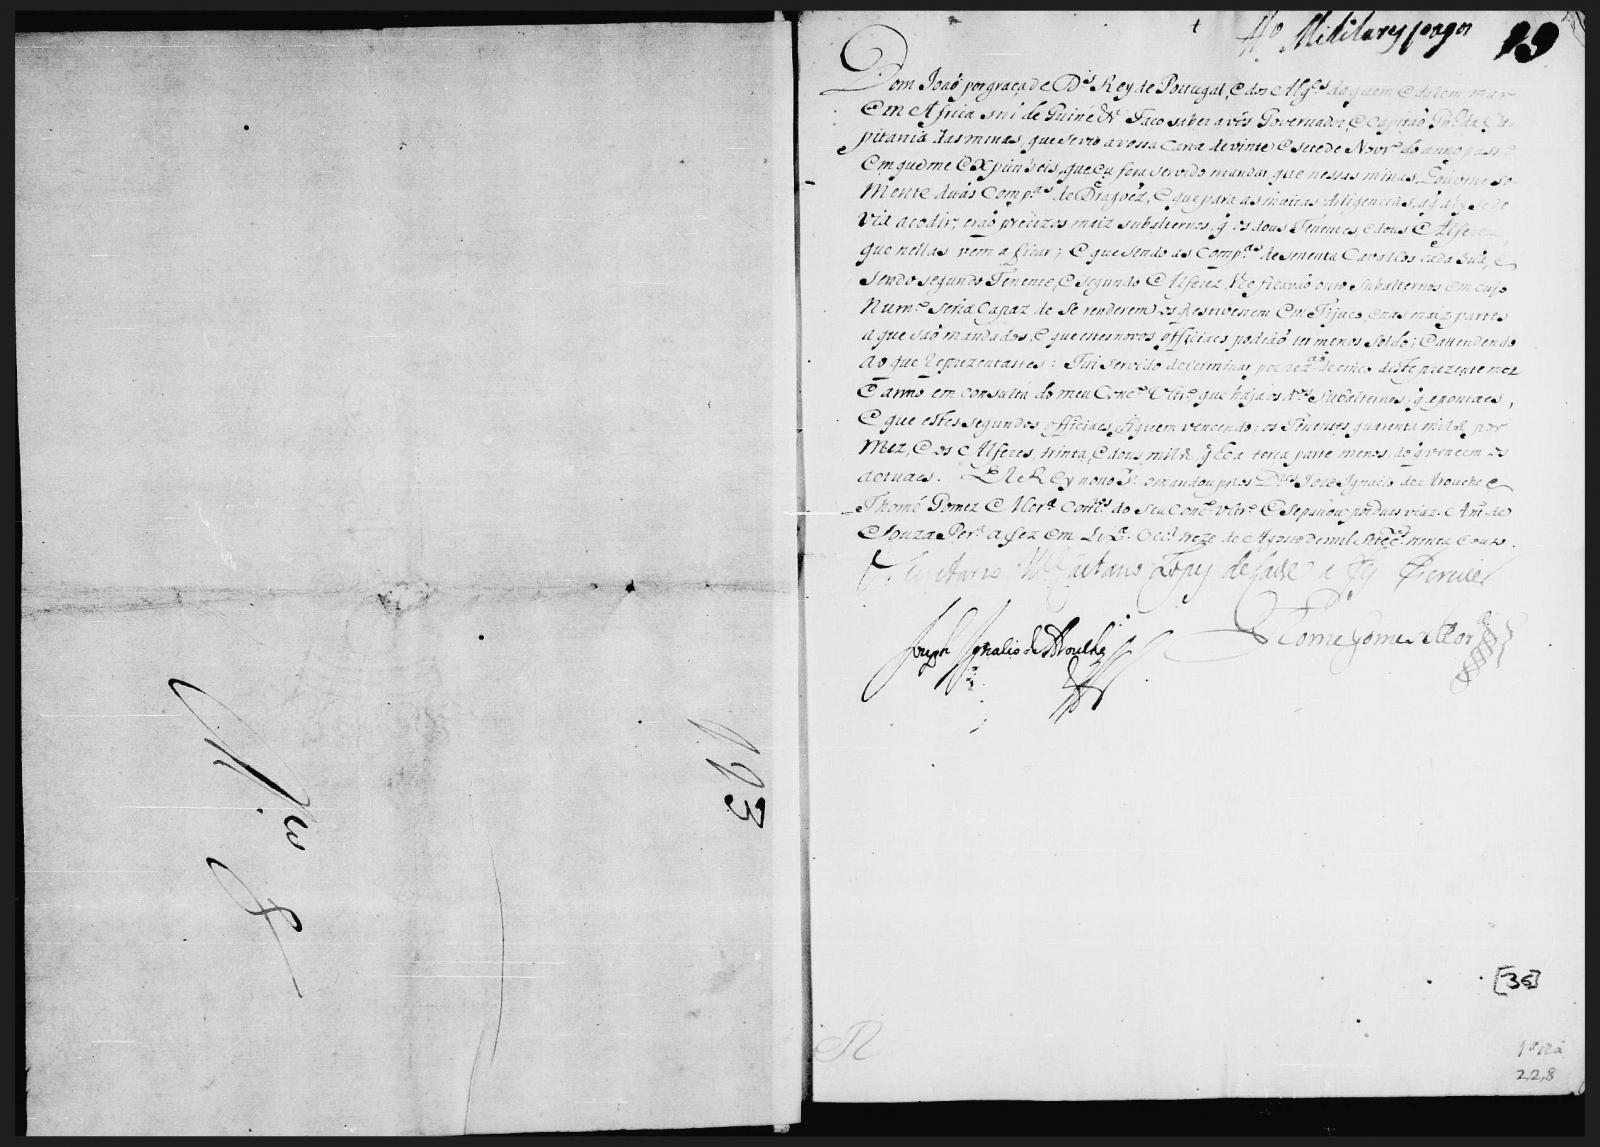 193
19
Dom João por graça de Ds. Rey de Portugal, e dos Alges. daquem e dalem mar
em Africa snr. de Guiné &a. Faço saber a vós Governador, e Capitão Gnal. da Ca-
pitania das minas, que se vio a vossa Carta de vinte e sete de Novro. do anno pasdo.
em que me expunheis, que eu fora servido mandar, que nessas minas houvesse so-
mente duas Compas. de Dragoēz, e que para as muitas diligencias, a q ahy se de
via acodir, erão precizos maiz subalternos, q os dous Tenentes e dous Alferez,
que nellas vem a ficar; e que sendo as Compas. de secenta Cavallos cada huã, e
sendo segundo Tenente, e segundo Alferez, ficavão outo subalternos em cujo
Numro. seria capaz de se renderem os q estivessem em Tijuco, e nas maiz partes
a que são mandados, e que estes novos officiaes podião ter menos soldo; e attendendo
ao que reprezentastes: Fui servido determinar por rezam. de cinco deste prezente mez
e anno em consulta do meu Conco. Ultro. que haja os ds. subalternos, q apontaes,
e que estes segundos officiaes fiquem vencendo; os Tenentes quarenta mil rs. por
Mez, e os Alferes, trinta, e dous mil rs. q he a terça parte menos, do q vencem os
actuaes. El Rey nosso Sr. o mandou pelos Drs. Joze Ignacio de Arouche e
Thomé Gomez Mora. Conros. do seu Conco. Ultro. e se passou por duas vias. Anto. de
Souza Pera. a fez em Lixa. Occal. treze de Agosto de mil settecos. trinta e outo.
O Secretario Ml. Caetano Lopes de Lavre a fez escrever
Joseph Ignacio de Arouche
Thome Gomes Mor
[36]
1ª via
2,2,8